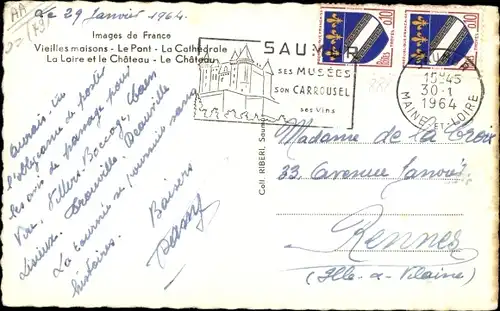 Le 29 Janvier 1964.
Images de France
Vieilles maisons - Le Pont - La Cathédrale
La Loire et le Château - Le Château
SAUMUR
SES MUSÉES
SON CARROUSEL
ses Vins
0,10
0,10
15H45
30-1
1964
MAINE ET LOIRE
Coll. RIBERI, Saumur
aurais-tu
l'obligeance de poster
les avis de passage pour Caen
Vire, Villers-Bocage, Deauville
Lisieux, Trouville.
La tournée se poursuit sans
histoires.
Baisers
Madame de la Croix
33 Avenue Janvier
Rennes
(Ille-&-Vilaine)